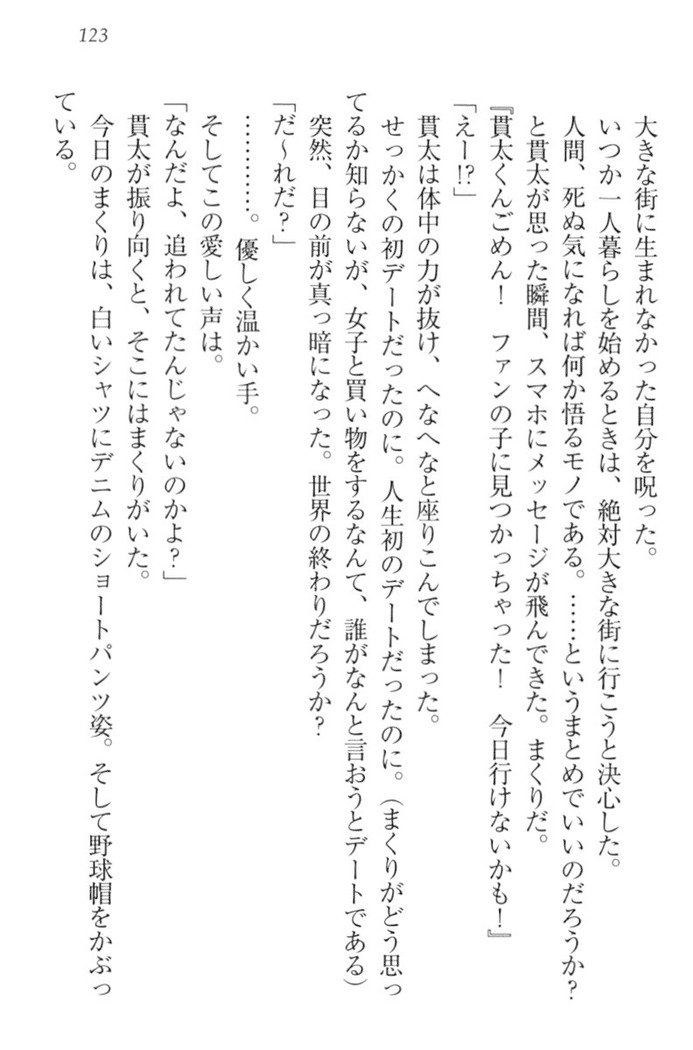 123
大きな街に生まれなかった自分を呪った。
いつか一人暮らしを始めるときは、絶対大きな街に行こうと決心した。
人間、死ぬ気になれば何か悟るモノである。……というまとめでいいのだろうか?
と貫太が思った瞬間、スマホにメッセージが飛んできた。まくりだ。
『貫太くんごめん! ファンの子に見つかっちゃった! 今日行けないかも!』
「えー!?」
貫太は体中の力が抜け、へなへなと座りこんでしまった。
せっかくの初デートだったのに。人生初のデートだったのに。(まくりがどう思っ
てるか知らないが、女子と買い物をするなんて、誰がなんと言おうとデートである)
突然、目の前が真っ暗になった。世界の終わりだろうか?
「だ〜れだ?」
…………。優しく温かい手。
そしてこの愛しい声は。
「なんだよ、追われてたんじゃないのかよ?」
貫太が振り向くと、そこにはまくりがいた。
今日のまくりは、白いシャツにデニムのショートパンツ姿。そして野球帽をかぶっ
ている。